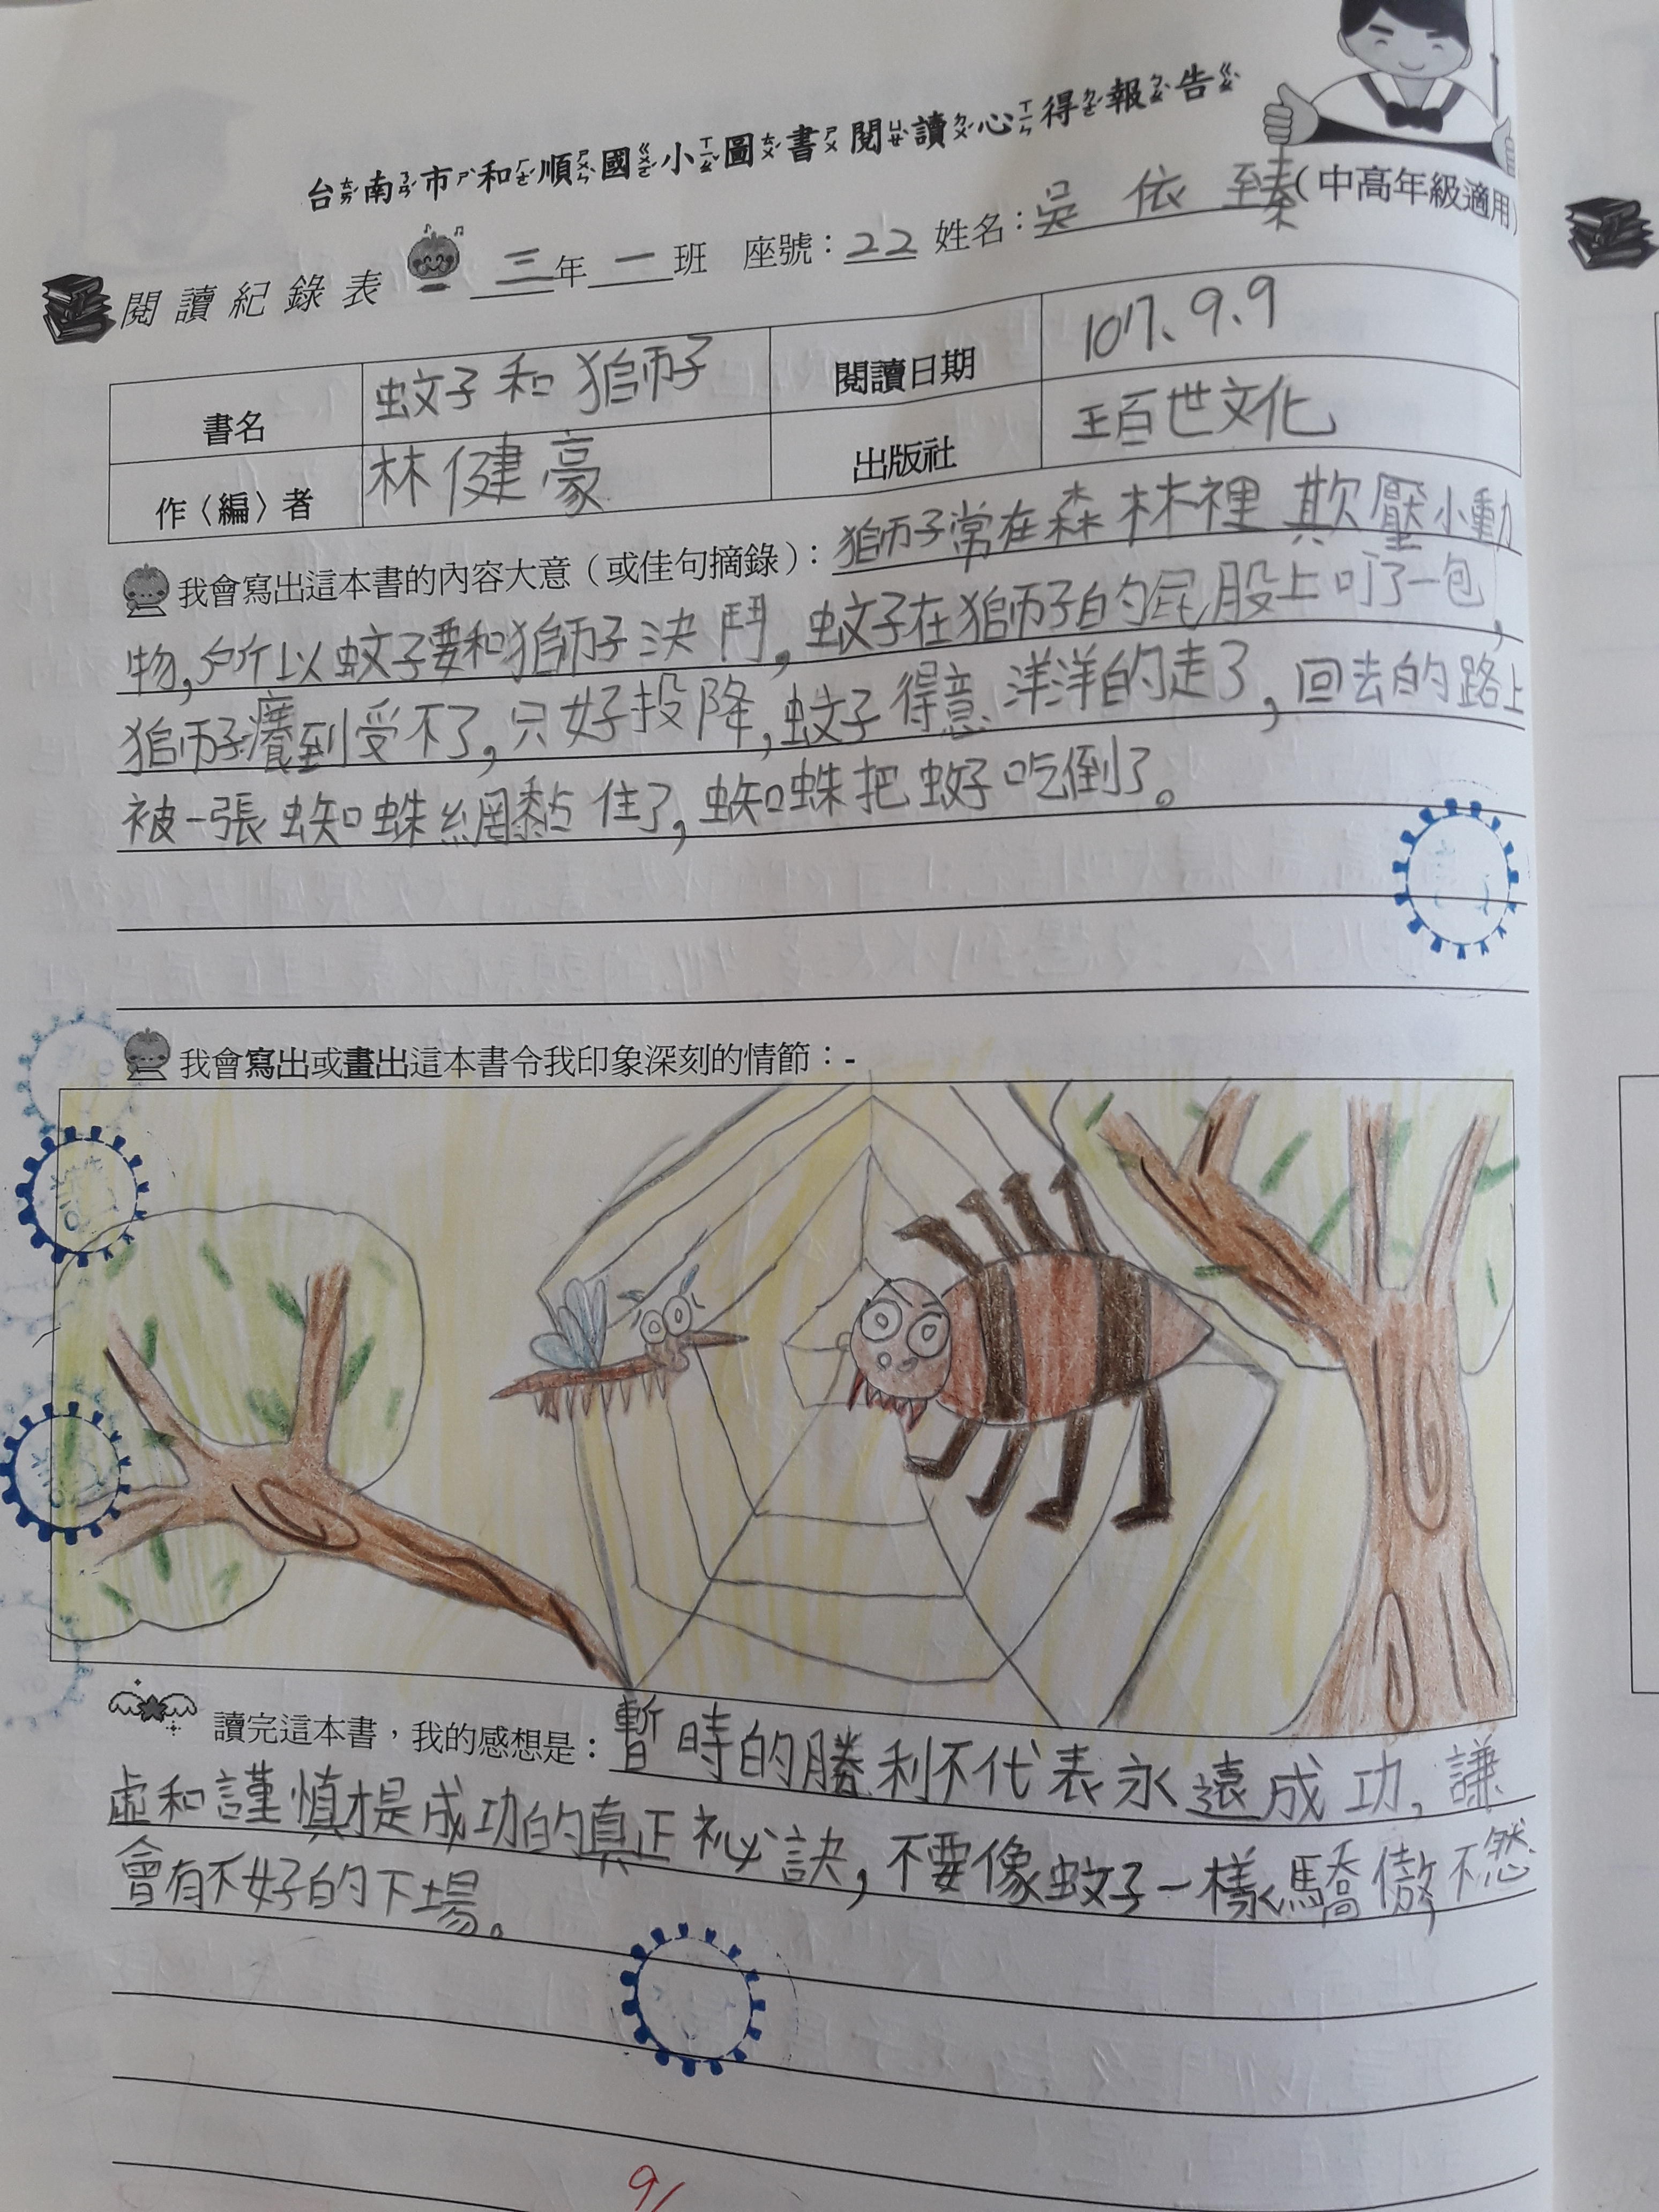 台南市和順國小圖書閱讀心得報告
(中高年級適用)
閱讀紀錄表 三年一班 座號：22 姓名：吳依臻
書名 蚊子和獅子 閱讀日期 107、9、9
作〈編〉者 林健豪 出版社 王百世文化
我會寫出這本書的內容大意（或佳句摘錄）：獅子常在森林裡欺壓小動
物,所以蚊子要和獅子決鬥,蚊子在獅子的屁股上叮了一包,
獅子癢到受不了,只好投降,蚊子得意洋洋的走了,回去的路上
被一張蜘蛛網黏住了,蜘蛛把蚊子吃倒了。
我會寫出或畫出這本書令我印象深刻的情節：-
讀完這本書，我的感想是：暫時的勝利不代表永遠成功,謙
虛和謹慎才是成功的真正祕訣,不要像蚊子一樣驕傲,不然
會有不好的下場。
9/